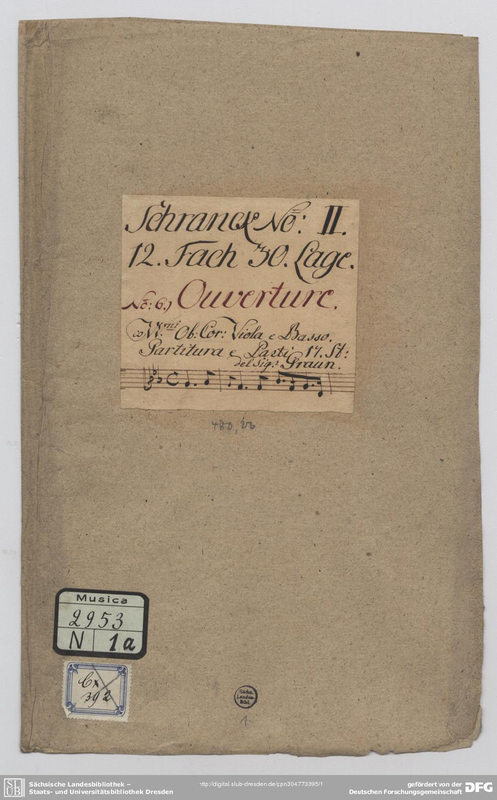 Schranck No: II.
12. Fach 30. Lage.
No: 6.) Ouverture.
co VV.ni Ob: Cor: Viola e Basso.
Partitura e Parti 17. St:
del Sigr. Graun.
Musica
2953
N 1a
Cx
392
Sächs.
Landes-
Bibl.
1
SLUB
Sächsische Landesbibliothek –
Staats- und Universitätsbibliothek Dresden
http://digital.slub-dresden.de/ppn304773395/1
gefördert von der
Deutschen Forschungsgemeinschaft
DFG